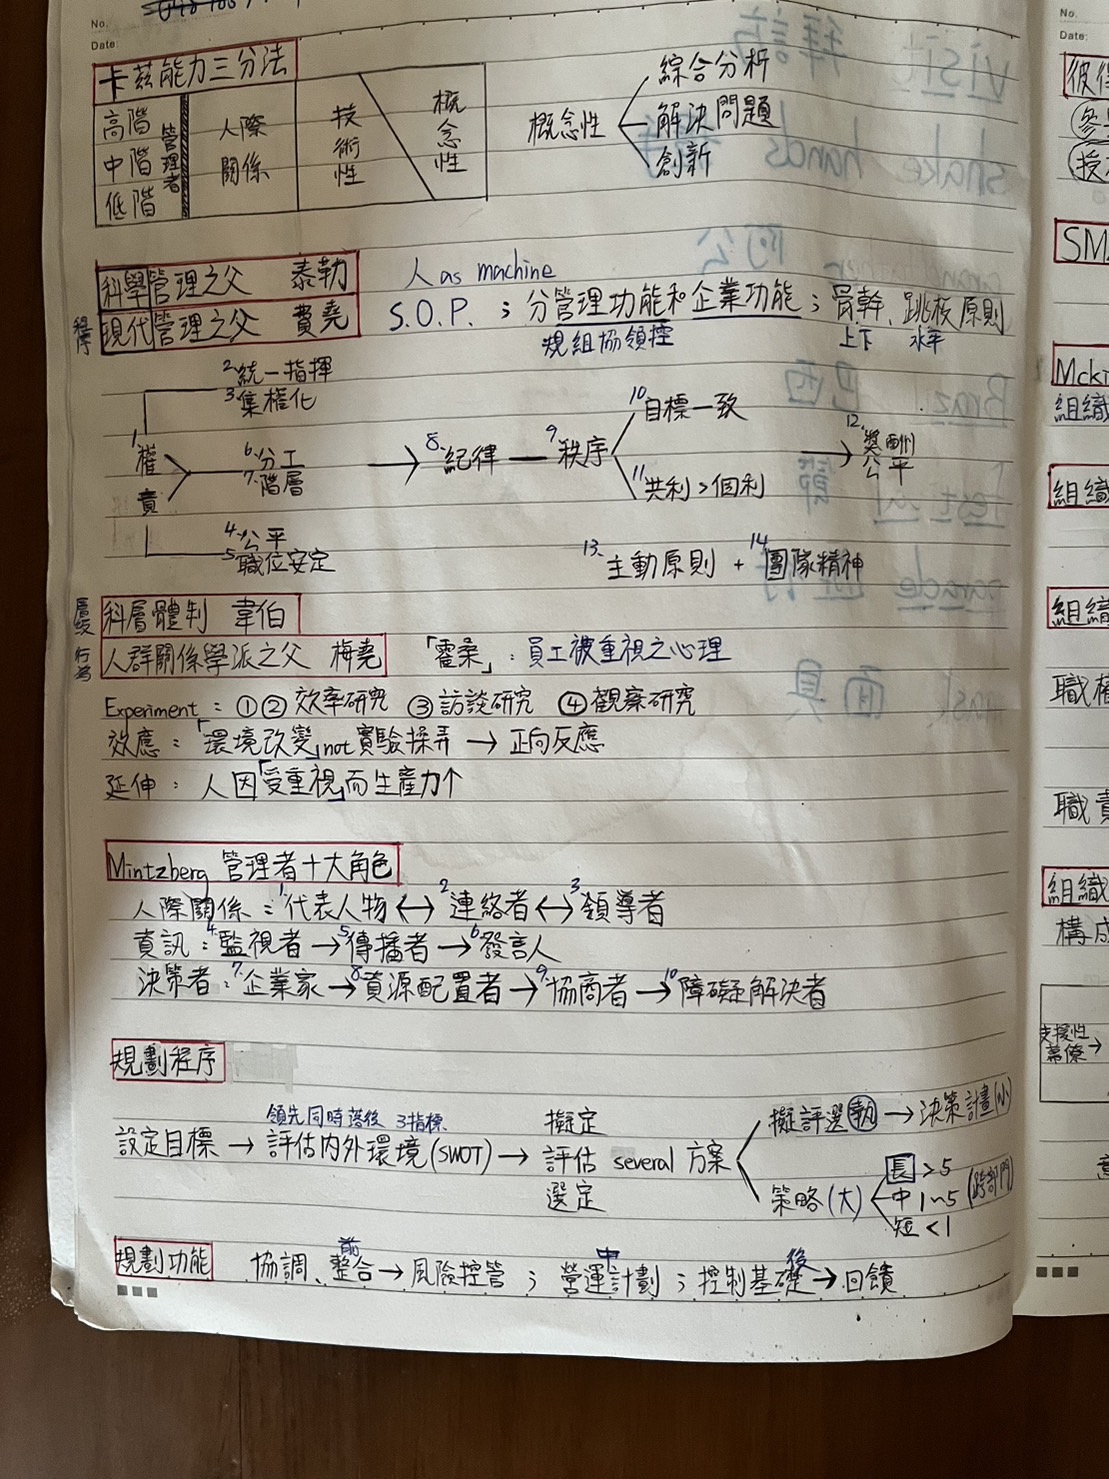 No.
Date:
卡茲能力三分法
高階
中階
低階
管理者
人際
關係
技術性
概念性
概念性
綜合分析
解決問題
創新
科學管理之父 泰勒 人 as machine
程序 現代管理之父 費堯 S.O.P. ; 分管理功能和企業功能 ; 骨幹、跳板原則
規組協領控 上下 水平
1. 權責
2. 統一指揮
3. 集權化
6. 分工
7. 階層
4. 公平
5. 職位安定
→ 8. 紀律 — 9. 秩序
10. 目標一致
11. 共利 > 個利
→ 12. 獎酬公平
13. 主動原則 + 14. 團隊精神
層級 科層體制 韋伯
行為 人群關係學派之父 梅堯 「霍桑」: 員工被重視之心理
Experiment : ①② 效率研究 ③ 訪談研究 ④ 觀察研究
效應 : 「環境改變」not 實驗操弄 → 正向反應
延伸 : 人因「受重視」而生產力↑
Mintzberg 管理者十大角色
人際關係 : 1. 代表人物 ↔ 2. 連絡者 ↔ 3. 領導者
資訊 : 4. 監視者 → 5. 傳播者 → 6. 發言人
決策者 : 7. 企業家 → 8. 資源配置者 → 9. 協商者 → 10. 障礙解決者
規劃程序
領先同時落後 3指標
設定目標 → 評估內外環境(SWOT) →
擬定
評估 several 方案
選定
擬評選執 → 決策計畫(小)
策略(大)
長 > 5
中 1~5 (跨部門)
短 < 1
規劃功能 協調、整合 → 風險控管 ; 營運計劃 ; 控制基礎 → 回饋
前 中 後
No.
Date:
SM
組織
組織
組織
職權
職責
組織
構成
支援性
幕僚 →